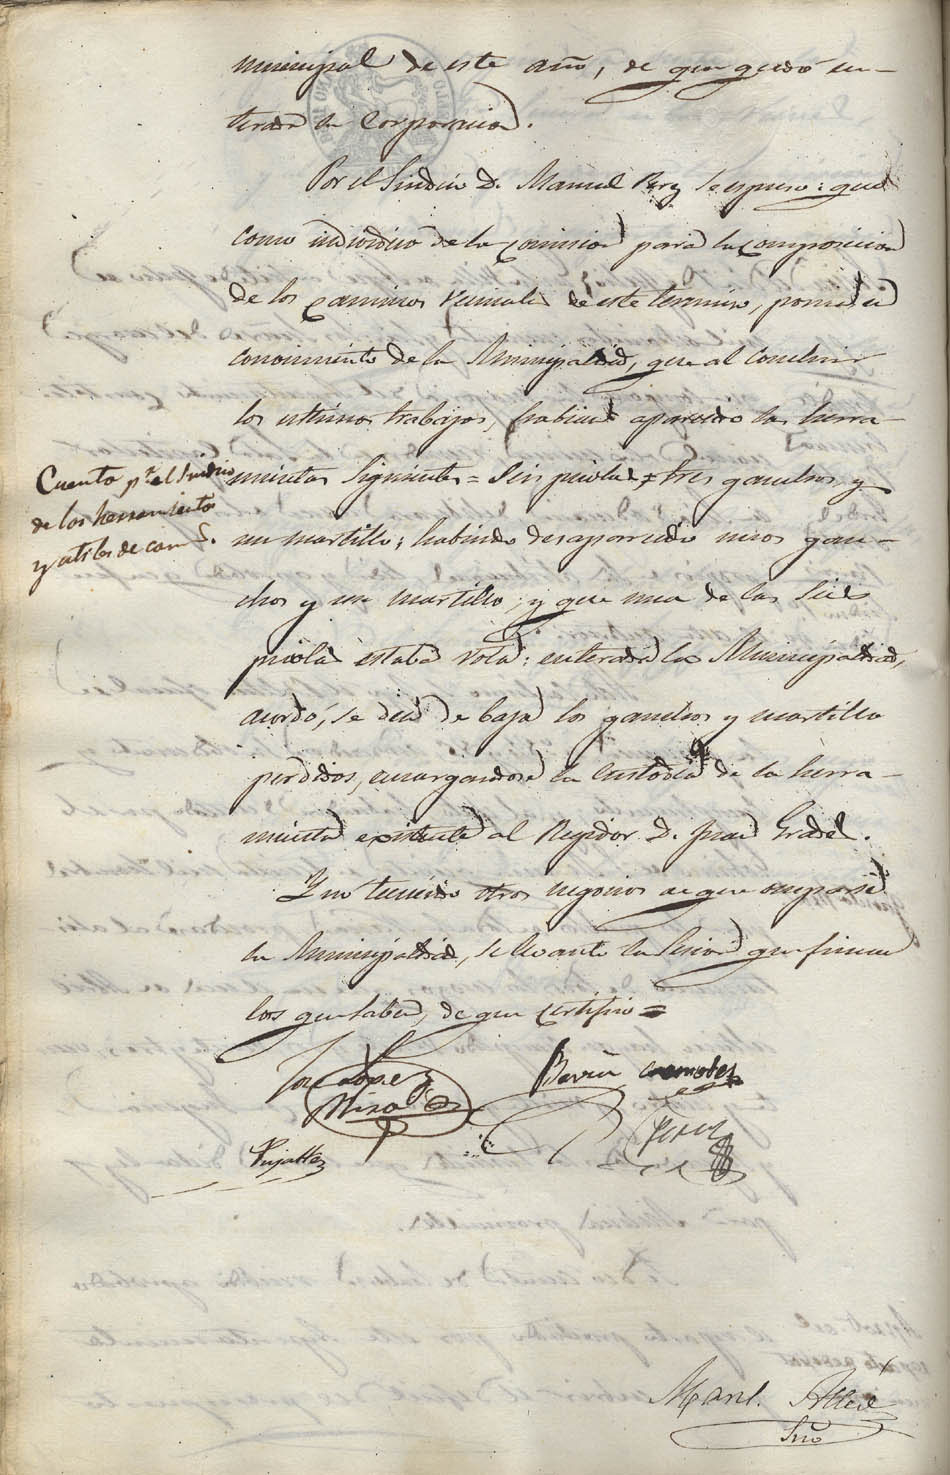 municipal de este año, de que quedó en-
terada la Corporacion.
Por el Sindico D. Manuel Perz se espuso: que
como individuo de la Comision para la composicion
de los caminos vecinales de este termino, ponia en
conocimiento de la Municipalidad, que al concluir
los ultimos trabajos, habian aparecido las herra-
Cuenta pr. el Sindico
de los herramientas
y utiles de cams.
mientas siguientes = Seis picolas, tres ganchos y
un martillo; habiendo desaparecido unos gan-
chos y un martillo; y que una de las seis
picolas estaba rota: enterada la Municipalidad,
acordó, se dén de baja los ganchos y martillo
perdidos, encargandose la custodia de la herra-
mienta existente al Regidor D. Juan Gradel.
Y no teniendo otros negocios de que ocuparse
la Municipalidad, se levantó la Sesion que firman
los que saben, de que certifico =
Jose Lopez
Mira
Pujalte
Perez
Manl.
Srio